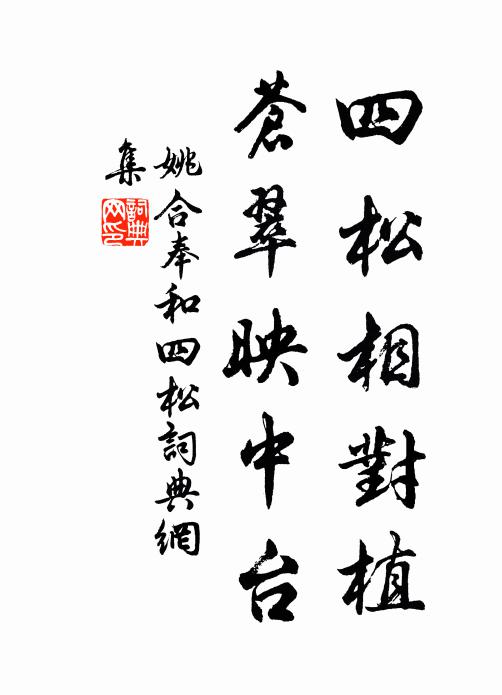 四松相對植
蒼翠映中台
姚合奉和四松詞典網
集
詞典網印